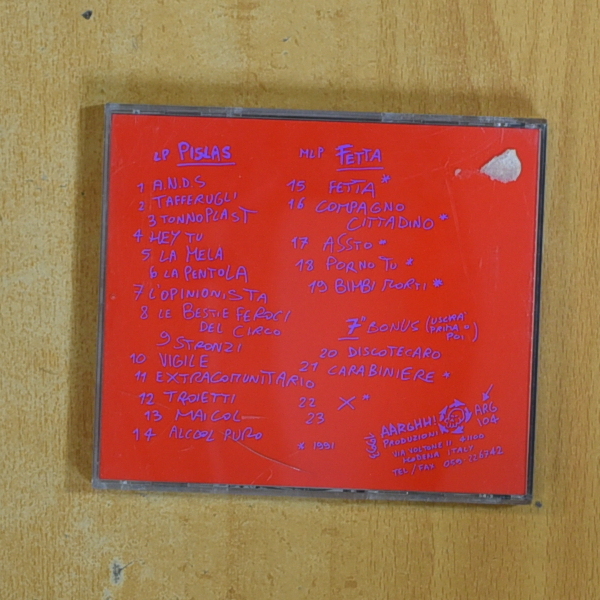 LP PISLAS
1 A.N.D.S
2 TAFFERUGLI
3 TONNOPLAST
4 HEY TU
5 LA MELA
6 LA PENTOLA
7 L'OPINIONISTA
8 LE BESTIE FEROCI
DEL CIRCO
9 STRONZI
10 VIGILE
11 EXTRACOMUNITARIO
12 TROIETTI
13 MAICOL
14 ALCOOL PURO
MLP FETTA
15 FETTA *
16 COMPAGNO
CITTADINO *
17 ASSTO *
18 PORNO TU *
19 BIMBI MORTI *
7" BONUS (USCIRÀ
PRIMA O
POI)
20 DISCOTECARO
21 CARABINIERE *
22 X *
23
* 1991
AARGHH!
PRODUZIONI
VIA VOLTONE 11, 41100
MODENA ITALY
TEL/FAX 059.226742
ARG
104